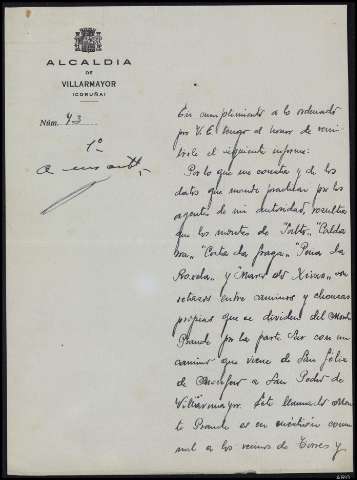 ALCALDIA
DE
VILLARMAYOR
(CORUÑA)
Núm. 43
1º
A
En cumplimiento a lo ordenado
por V. E. tengo el honor de remi-
tirle el siguiente informe:
Por lo que me consta y de los
datos que mandé practicar por los
agentes de mi autoridad, resulta
que los montes de
"Costa da fraga" "Pena da
y "Marco do son
retazos entre caminos y chouzas
propias que se dividen del Monte
Grande por la parte Sur con un
camino que viene de San Félix
de Monfero a San Pedro de
Villarmayor. Este llamado Mon-
te Grande es en comu-
nal a los vecinos de Torres y